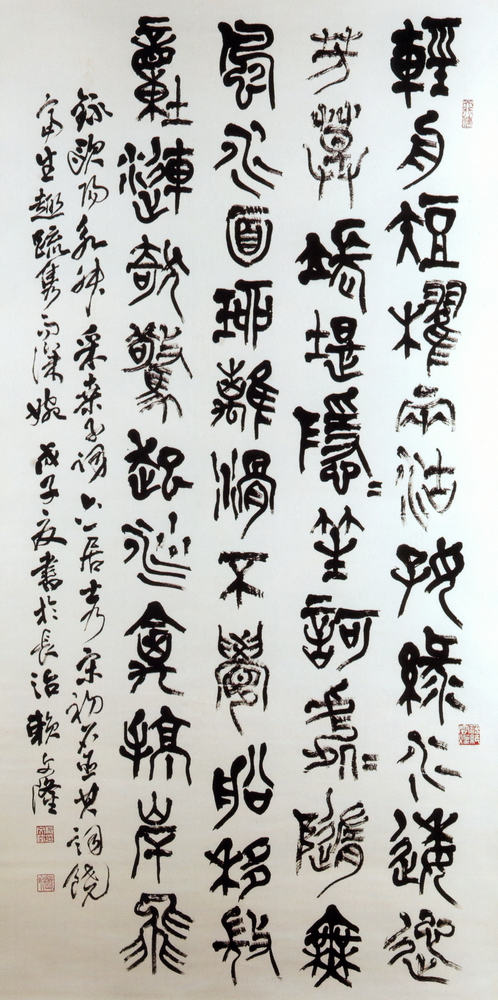 輕舟短櫂西湖好綠水逶迤
芳草長堤隱=笙歌處=隨無
風水面琉離滑不覺船移微
動漣漪驚起沙禽掠岸飛
錄歐陽永叔采桑子詞六一居士宋初其詞饒
富生趣疏雋而深婉戊子夏書於長治賴文隆